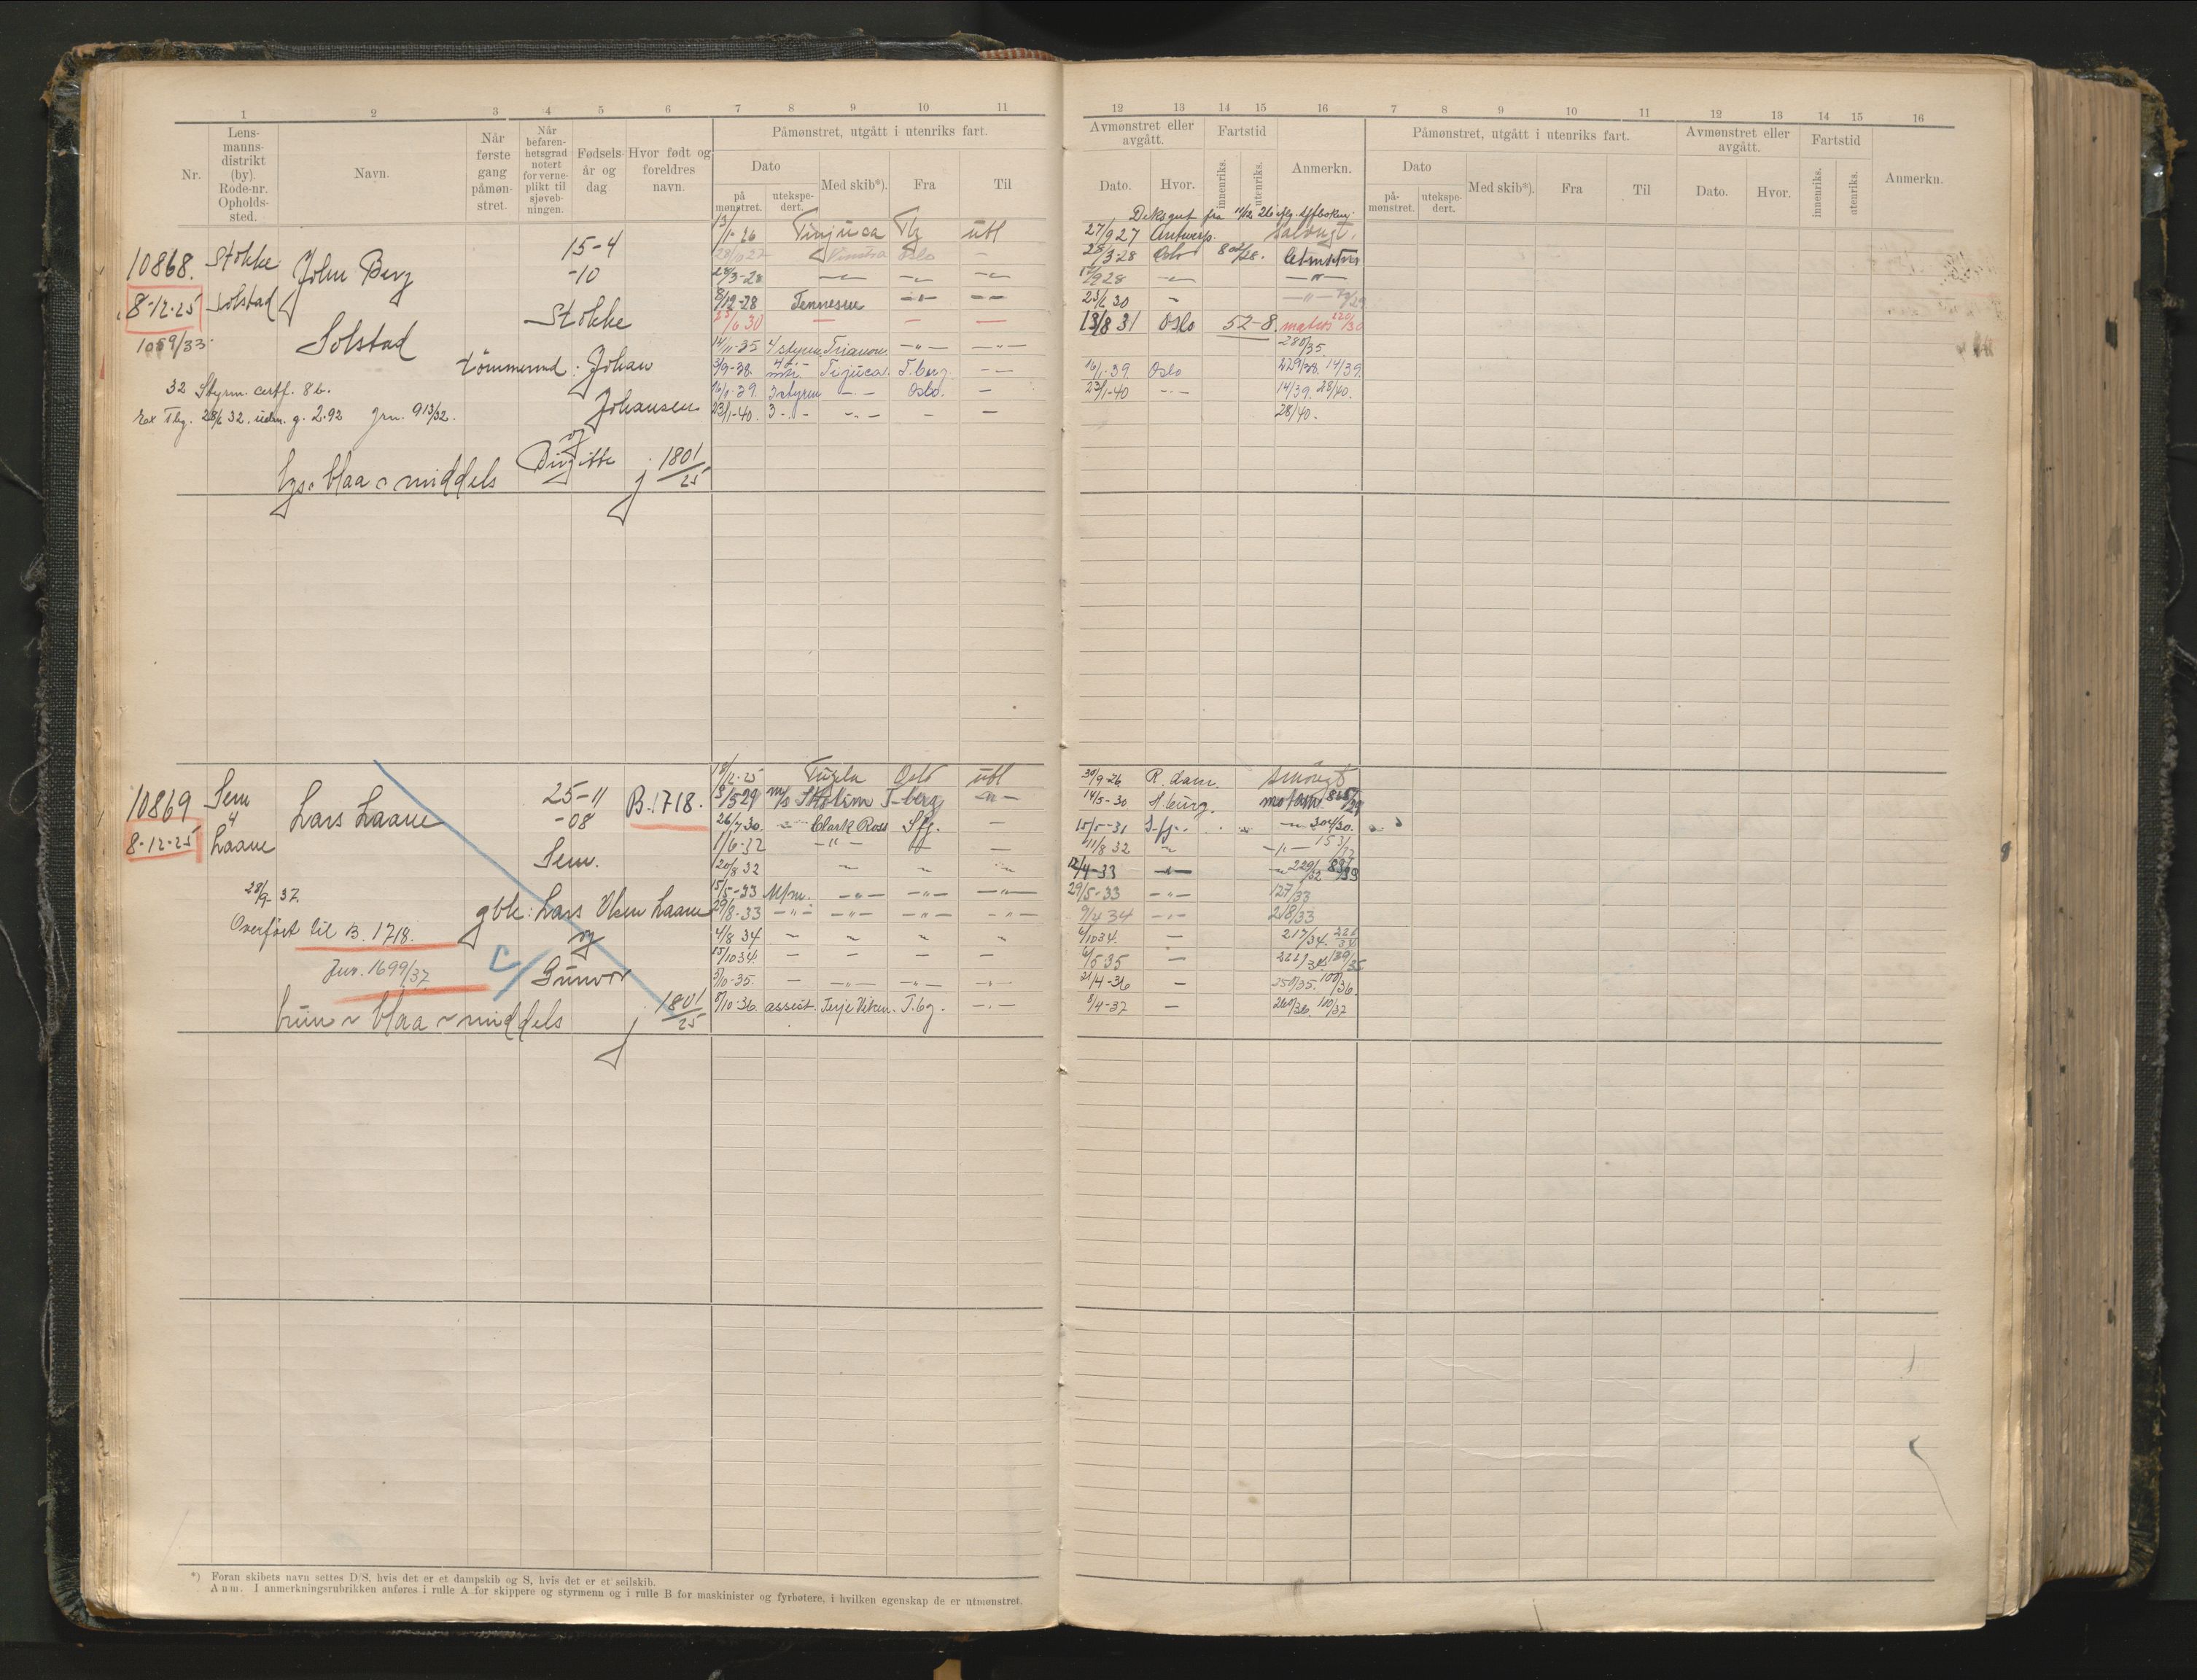 1 2 3 4 5 6 7 8 9 10 11
Nr.
Lens-
manns-
distrikt
(by).
Rode-nr.
Opholds-
sted.
Navn.
Når
første
gang
påmøn-
stret.
Når
befaren-
hetsgrad
notert
for verne-
plikt til
sjøveb-
ningen.
Fødsels-
år og
dag
Hvor født og
foreldres
navn.
Påmønstret, utgått i utenriks fart.
Dato
på
mønstret.
utekspe-
dert.
Med skib*).
Fra
Til
10868. Stokke John Berg 15-4
-10
8-12-25 Solstad
Solstad Stokke
1059/33.
tømmermd. Johan
Johansen
32 Styrm. certf. 86.
Rex Tbg. 28/6 32. udm. g. 2.92 Jrn. 913/32.
og
Birgitte
lys - blaa - middels j 1801/25
13/1-26 Tinjuca Tbg utl
28/10 27 Oslo —
28/3-28 — — —
8/12-28 Tennessee — —
23/6 30 — — —
14/11-35 4 styrm. Trianon. -"- -"-
3/9-38. Tijuca. T.berg. —
16/1-39. 3 styrm -"- Oslo. -
23/1-40. 3 -"- -"- — —
10869 Sem Lars Laane 25-11
-08
B. 1718.
8-12-25 Laane
Sem.
28/9 37.
Overført til B. 1718.
gbr: Lars Olsen Laane
og
Gunvor
Jnr. 1699/37
brun - blaa - middels j 1801/25
18/12-25 Tugela Oslo utl
8/5-29 m/s T-berg -"-
26/7 30. -"- Clark Ross Sfj. —
1/6-32 -"- —
20/8 32 ~ ~ ~
15/5-33 M/m. -"- -"- -"-
29/8-33 -"- -"- -"- -"-
4/8 34 ~ ~ ~ ~
15/10 34. — — — —
5/10-35. — -"- -"- -"-
8/10-36. assist. Terje Viken. T.bg. -"-
*) Foran skibets navn settes D/S, hvis det er et dampskib og S, hvis det er et seilskib.
Anm. I anmerkningsrubrikken anføres i rulle A for skippere og styrmenn og i rulle B for maskinister og fyrbøtere, i hvilken egenskap de er utmønstret.
12 13 14 15 16 7 8 9 10 11 12 13 14 15 16
Avmønstret eller
avgått.
Dato.
Hvor.
Fartstid
innenriks.
utenriks.
Anmerkn.
Påmønstret, utgått i utenriks fart.
Dato
på-
mønstret.
utekspe-
dert.
Med skib*).
Fra
Til
Avmønstret eller
avgått.
Dato.
Hvor.
Fartstid
innenriks.
utenriks.
Anmerkn.
27/9 27 Antwerp.
28/3-28 Oslo
12/9 28 — -"-
23/6 30 - -"-
13/8 31 Oslo 52-8. matros 220/30
280/35.
16/1-39. Oslo 229/38. 14/39.
23/1-40 -"- 14/39. 28/40.
28/40.
30/9-26 R.dam.
14/5-30 H.burg.
15/5-31 S.fj. ~ 304/30.
11/8 32 ~ -"-
12/4-33 -"-
29/5-33 -"- 127/33
9/4 34 -"- 218/33
6/10 34. — 217/34.
6/5 35 —
21/4-36 — 250/35. 100/36.
8/4-37 — 260/36. 110/37